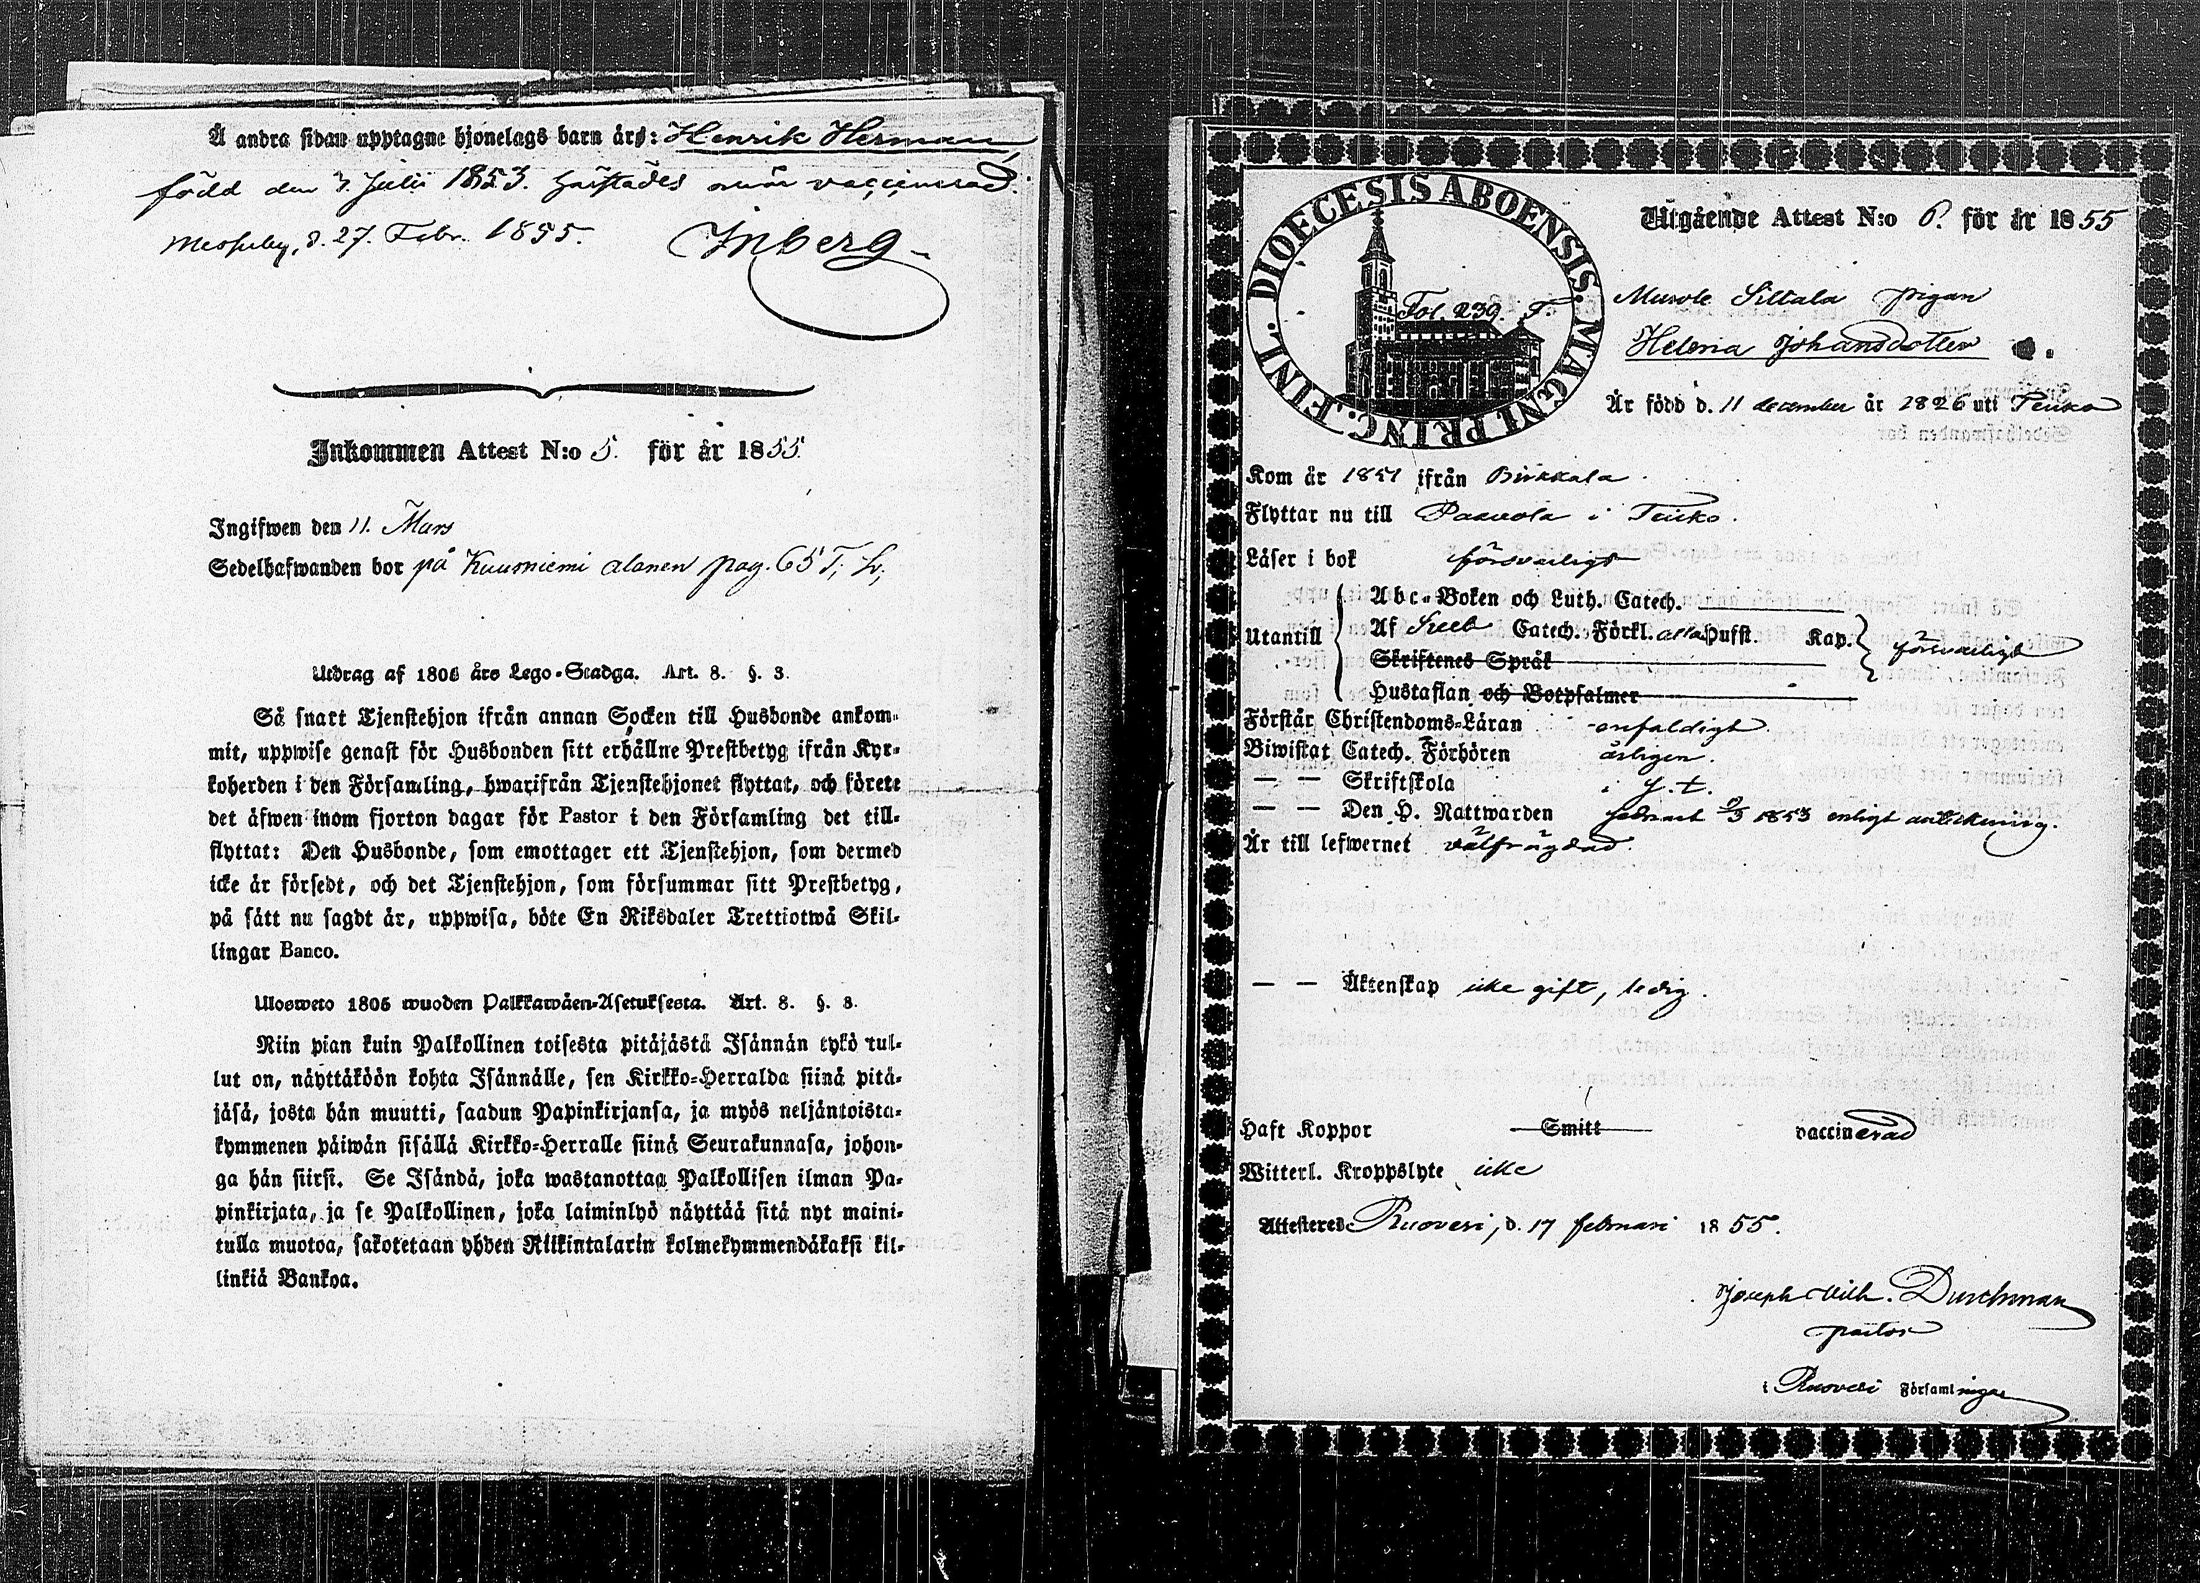 Å andra sidan upptagne hjonelags barn äro: Henrik Herman,
född den 3 Julii 1853. härstädes vaccinerad.
Messuby, d. 27. Febr. 1855. Inberg
Inkommen Attest N:o 5. för år 1855.
Ingifwen den 11. Mars
Sedelhafwanden bor på Kuusniemi alanen pag. 65
Utdrag af 1805 års Lego-Stadga. Art. 8. §. 3.
Så snart Tjenstehjon ifrån annan Socken till Husbonde ankom-
mit, uppwise genast för Husbonden sitt erhållne Prestbetyg ifrån Kyr-
koherden i den Församling, hwarifrån Tjenstehjonet flyttat, och förete
det äfwen inom fjorton dagar för Pastor i den Församling det till-
flyttat: Den Husbonde, som emottager ett Tjenstehjon, som dermed
icke är försedt, och det Tjenstehjon, som försummar sitt Prestbetyg,
på sätt nu sagdt är, uppwisa, böte En Riksdaler Trettiotwå Skil-
lingar Banco.
Ulosweto 1805 wuoden Palkkawäen-Asetuksesta. Art. 8. §. 3.
Niin pian kuin Palkollinen toisesta pitäjästä Isännän tykö tul-
lut on, näyttäköön kohta Isännälle, sen Kirkko-Herralda siinä pitä-
jäsä, josta hän muutti, saadun Papinkirjansa, ja myös neljäntoista-
kymmenen päiwän sisällä Kirkko-Herralle siinä Seurakunnasa, johon-
ga hän siirsi. Se Isändä, joka wastanottaa Palkollisen ilman Pa-
pinkirjata, ja se Palkollinen, joka laiminlyö näyttää sitä nyt maini-
tulla muotoa, sakotetaan yhden Riikintalarin kolmekymmendäkaksi kil-
linkiä Bankoa.
DIOECESIS ABOENSIS. MAGNI PRINC. FINL.
Fol. 239. F.
Utgående Attest N:o 6. för år 1855
Murole Siltala pigan
Helena Johansdotter
Är född d. 11 december år 1826 uti Teisko
Kom år 1851 ifrån Birkkala.
Flyttar nu till Paavola i Teisko.
Läser i bok försvarligt
Utantill
Abc-Boken och Luth. Catech.
Af Sveb Catech. Förkl. alla Hufst. Kap. försvarligt
Skriftenes Språk
Hustaflan och Botpsalmer
Förstår Christendoms-Läran enfaldigt.
Biwistat Catech. Förhören årligen.
— — Skriftskola i y. t.
— — Den H. Nattwarden 1853 enligt anteckning.
Är till lefwernet välfrägdad.
— — Äktenskap icke gift, ledig.
Haft Koppor Smitt vaccinerad
Witterl. Kroppslyte icke
Attesteres Ruovesi, d. 17 februari 1855.
Joseph Wilh. Durchman
pastor
i Ruovesi Församlingar